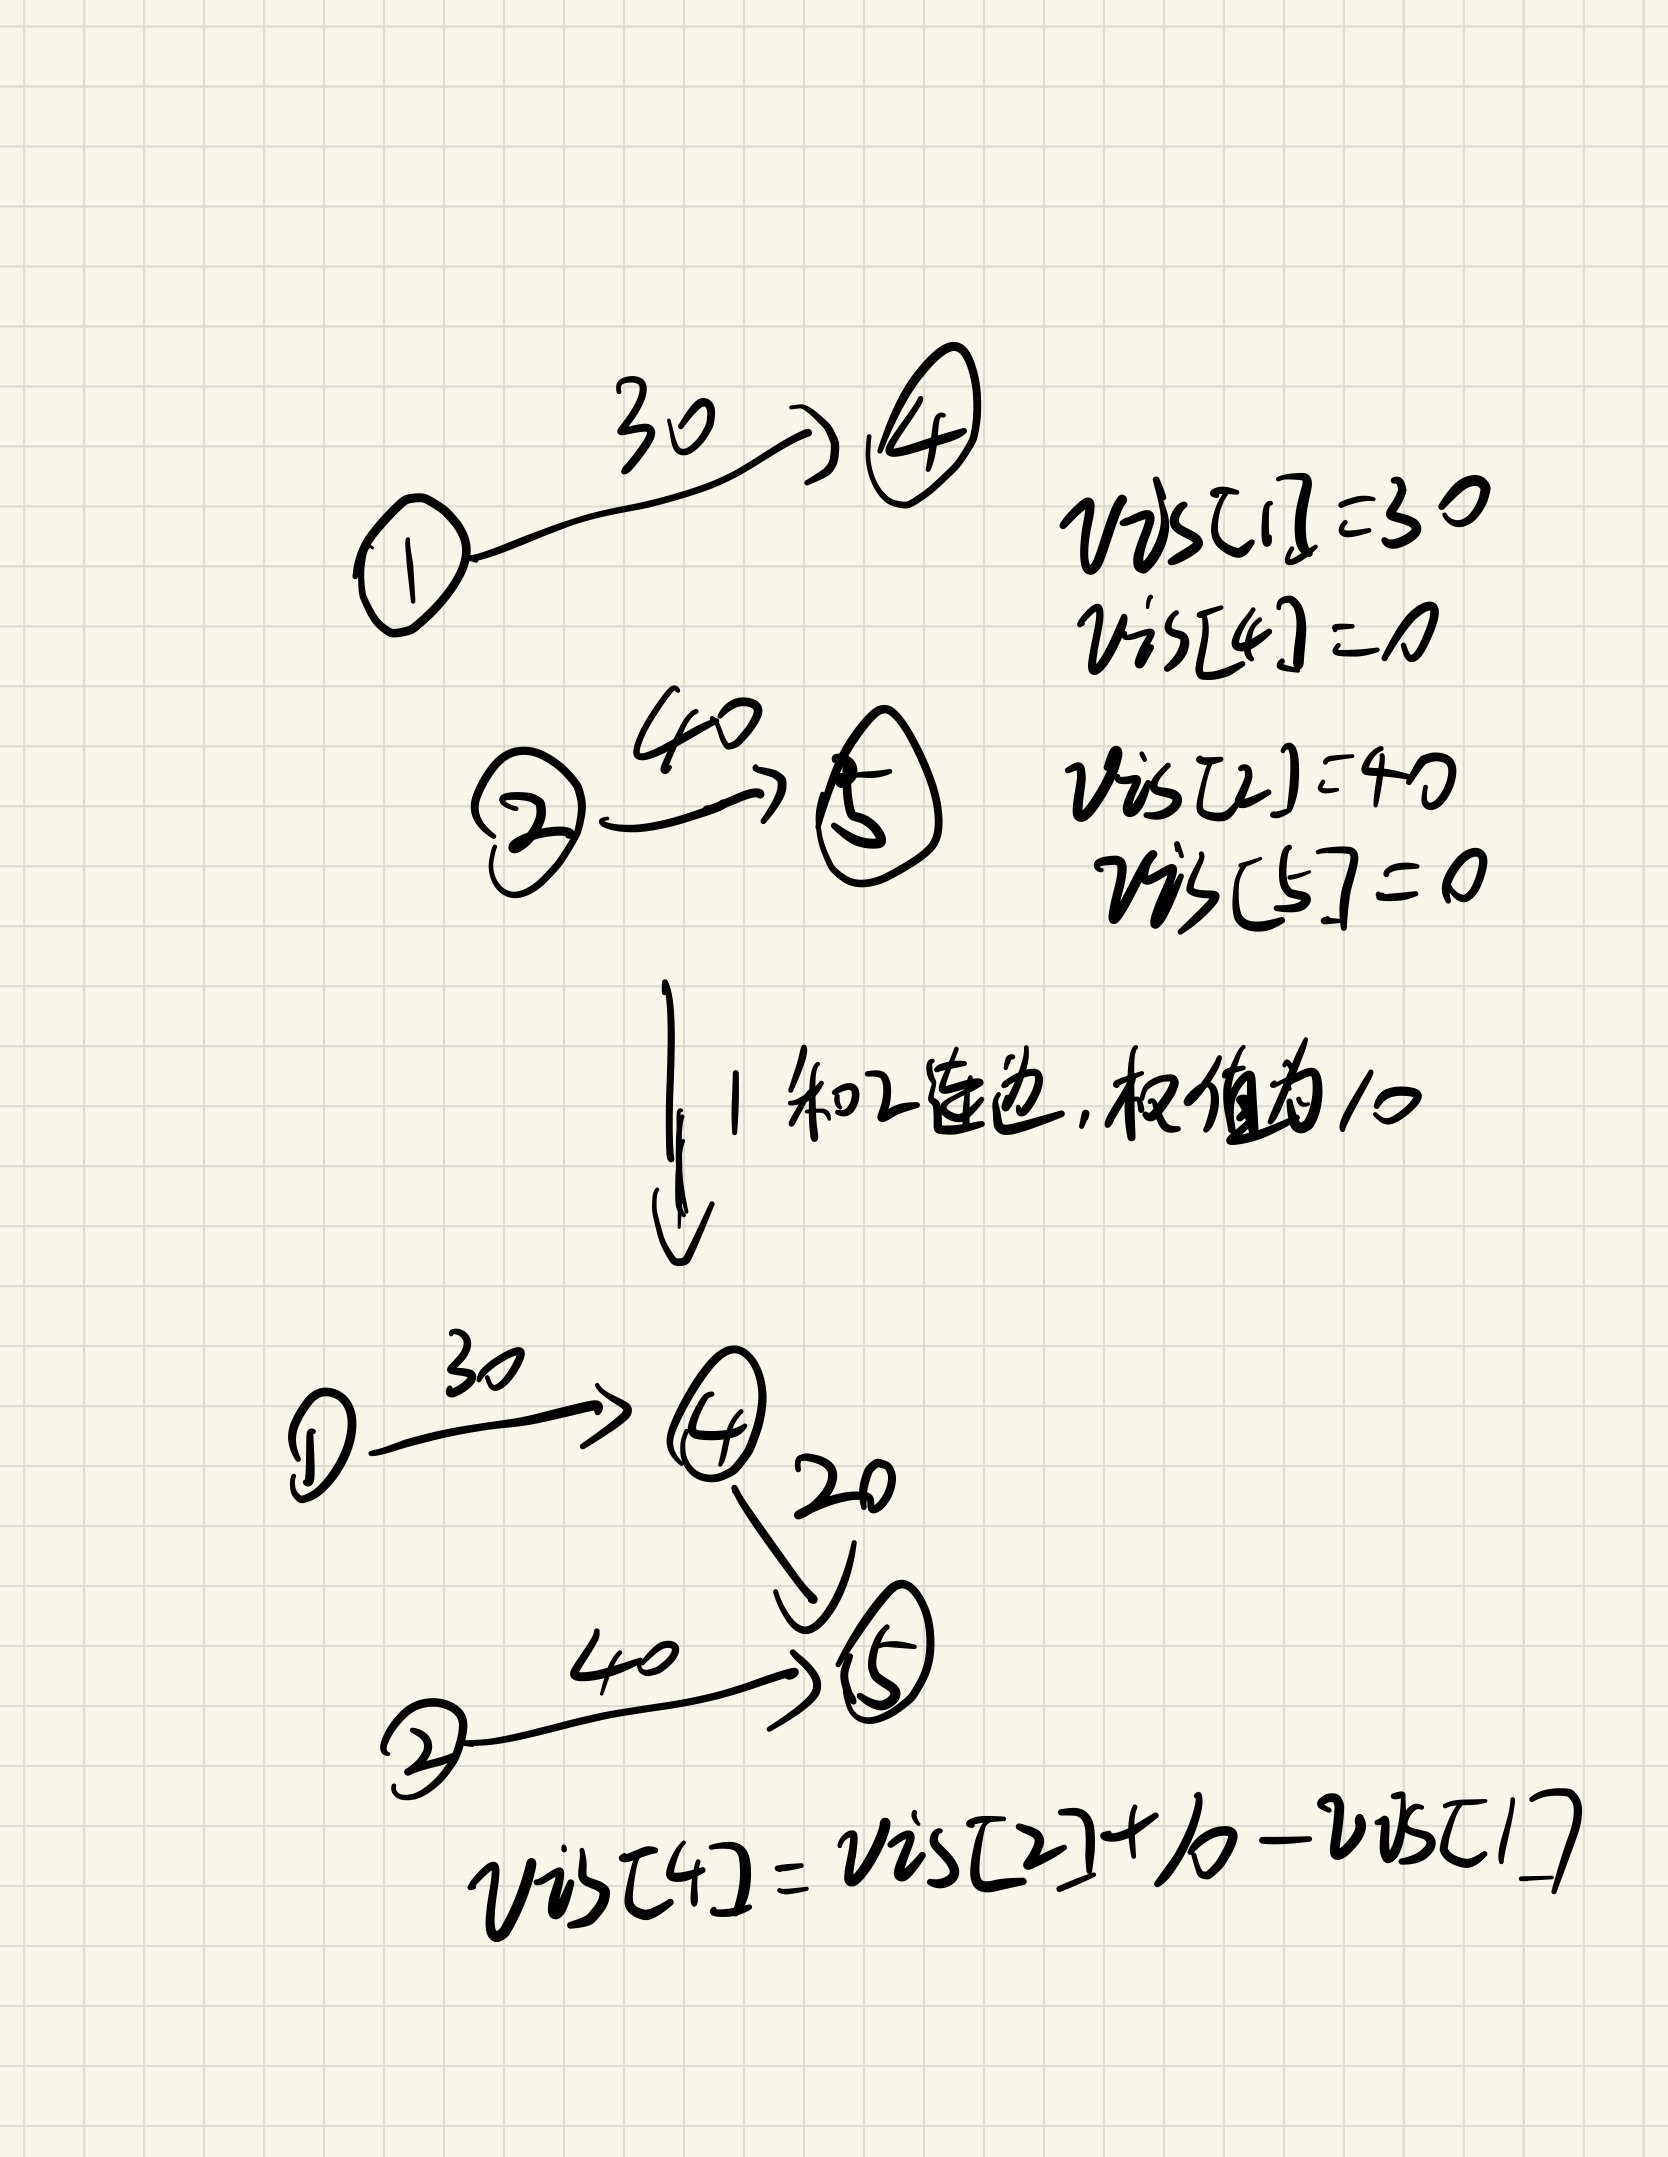 30
4
1
vis[1]=30
vis[4]=0
40
2
5
vis[2]=40
vis[5]=0
1和2连边,权值为10
30
1
4
20
40
5
2
vis[4]=vis[2]+10-vis[1]